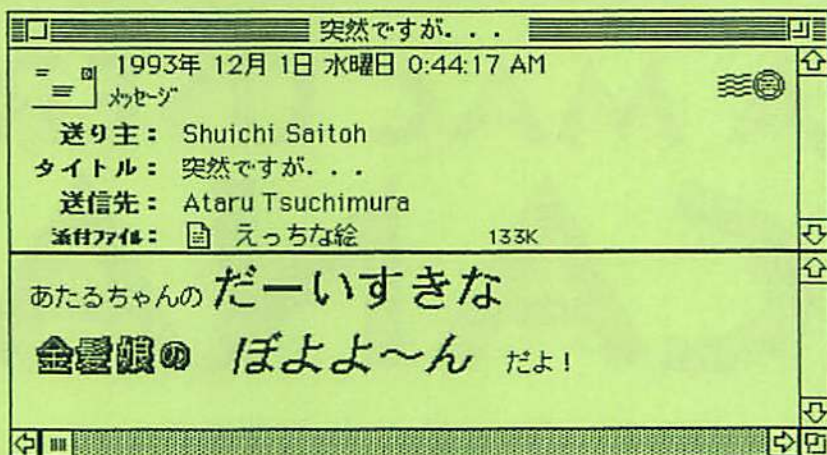 突然ですが．．．
1993年 12月 1日 水曜日 0:44:17 AM
メッセージ
送り主： Shuichi Saitoh
タイトル： 突然ですが．．．
送信先： Ataru Tsuchimura
添付ファイル： えっちな絵 133K
あたるちゃんの だーいすきな
金髪娘の ぼよよ〜ん だよ！